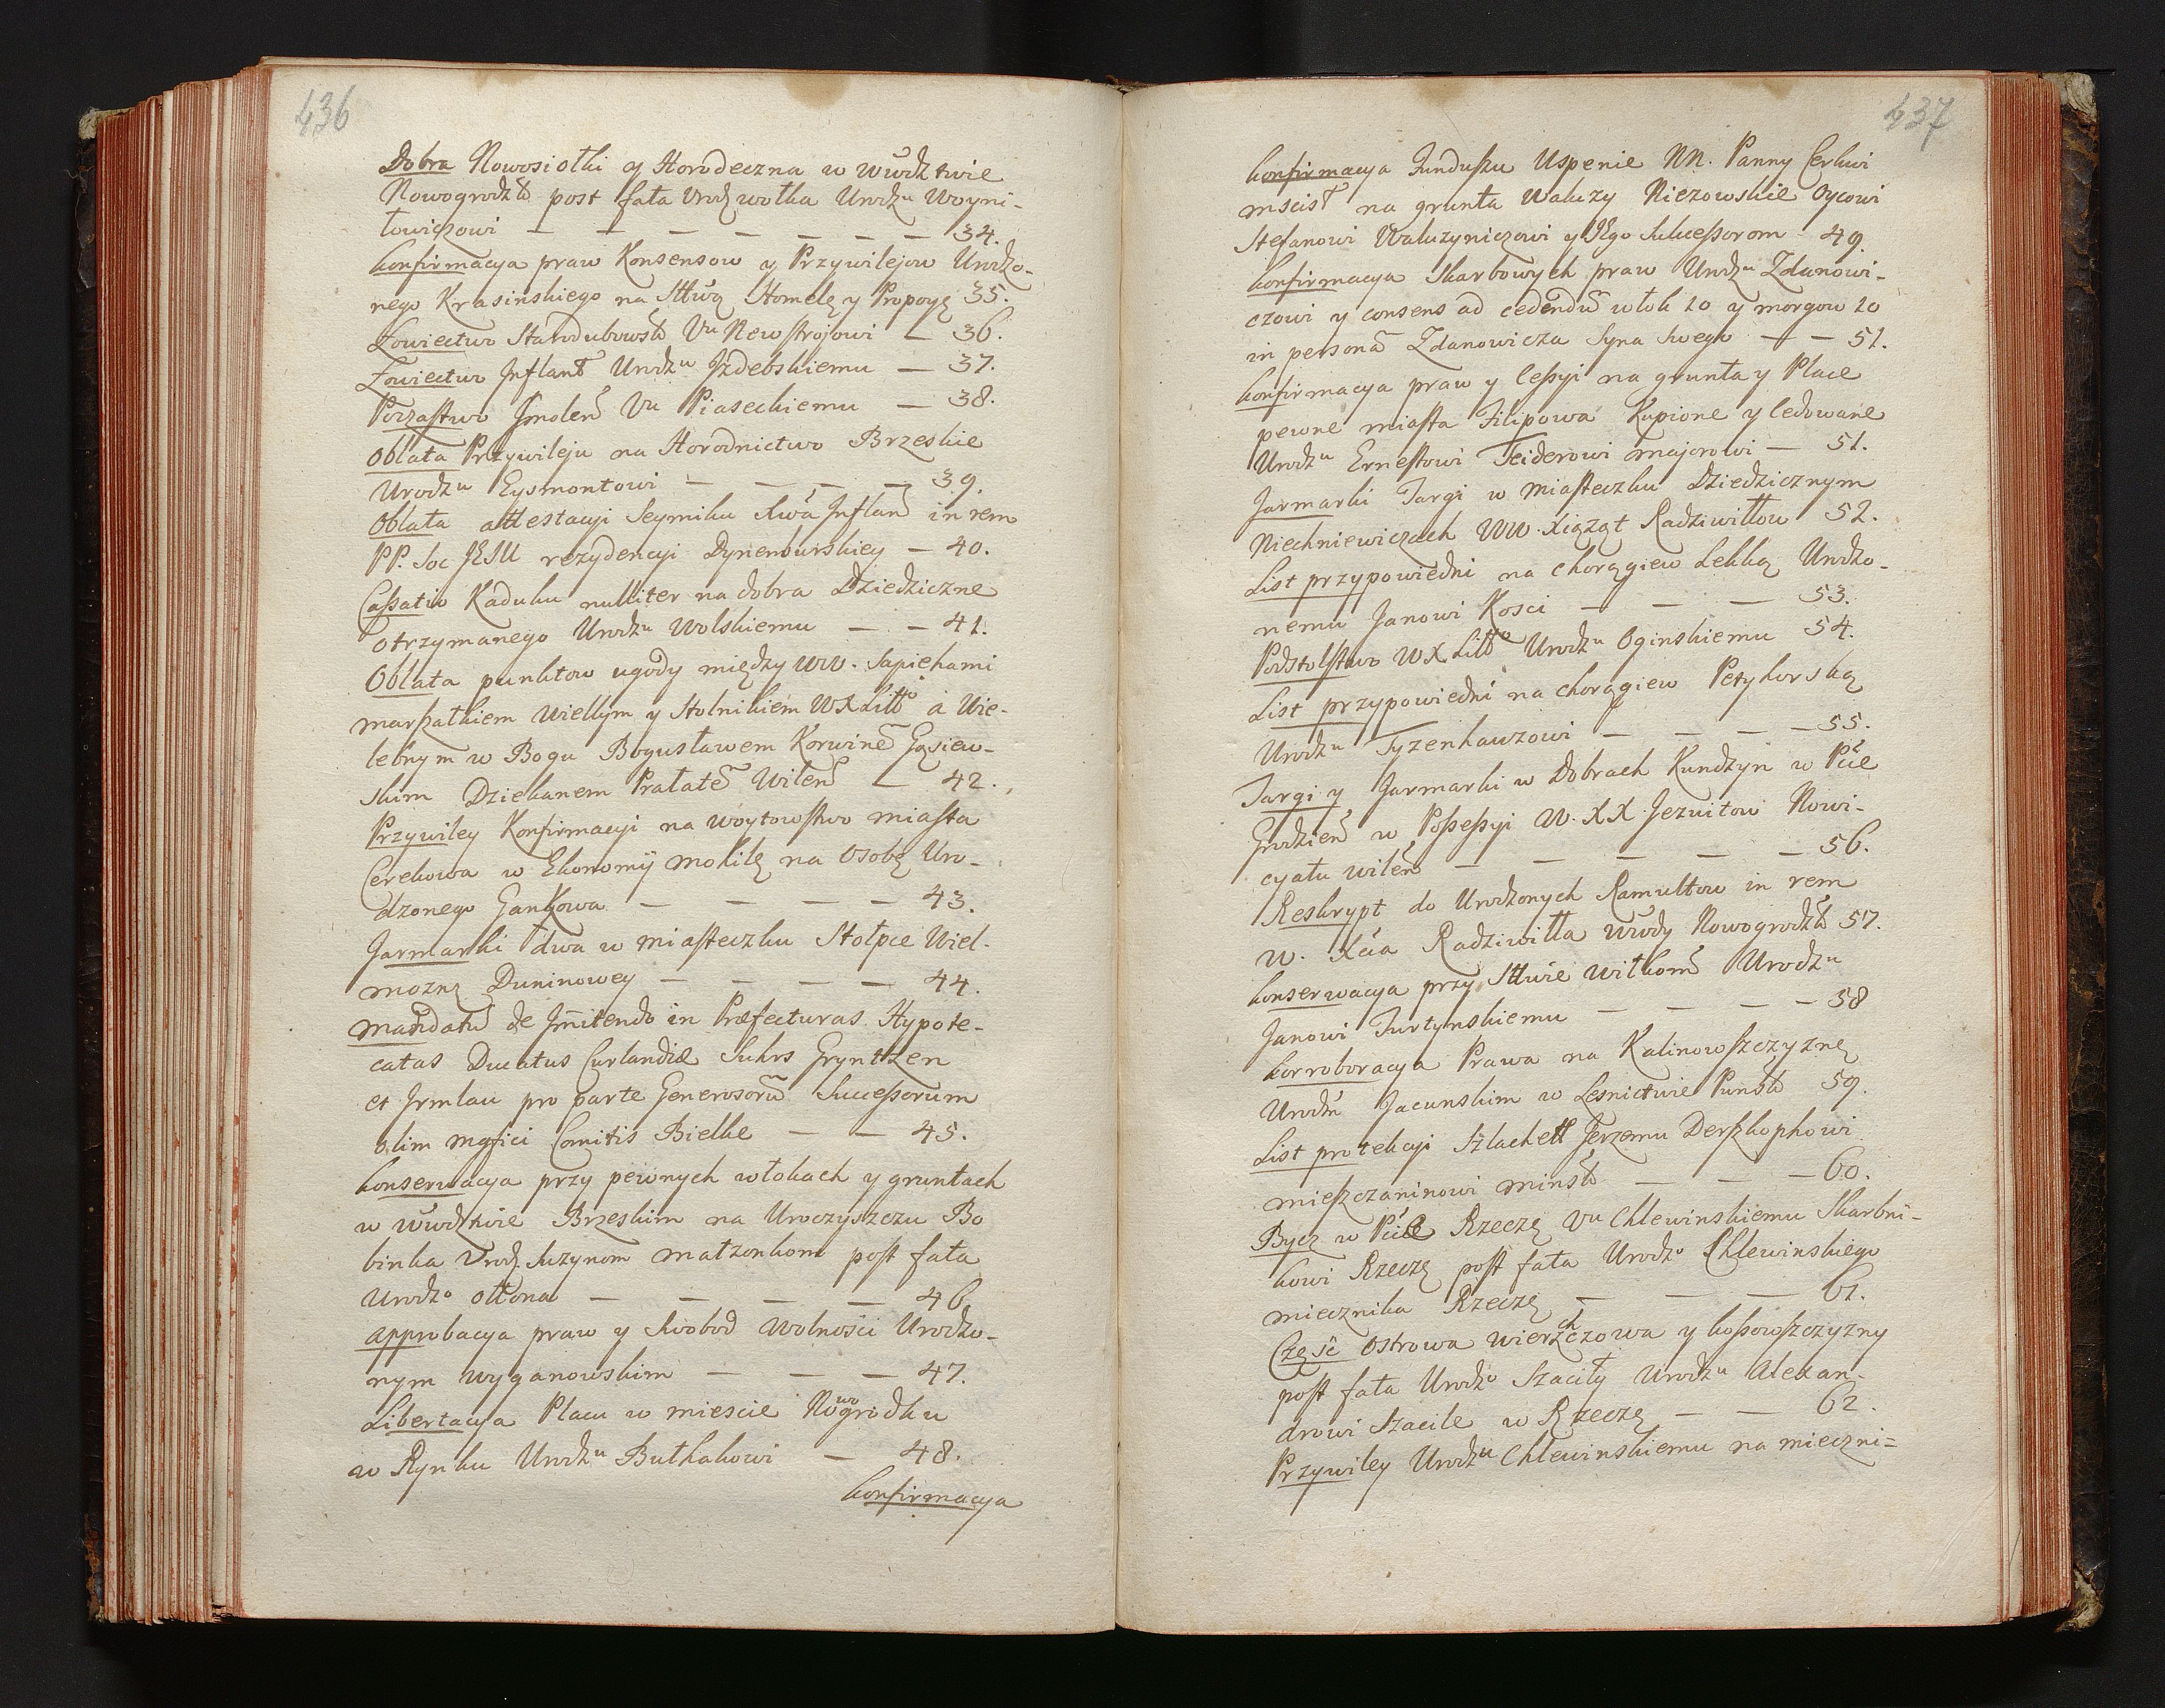 436
Dobra Nowosiołki y Horodeczna w Wwdztwie
Nowogrodzk post fata Urodz wołka Urodzu Woyni-
łowiczowi — — — — — — — 34.
konfirmacya praw Konsensow y Przywilejow Urodzo-
nego Krasinskiego na Sttwą Homelę y Propoyę 35.
Łowiectwo Starodubowsk Vu Newstrojowi — 36.
Łowiectwo Inflant Urodzu Jzdebskiemu — 37.
Podzastwo Smolen Vu Piaseckiemu — 38.
Oblata Przywileju na Horodnictwo Brzeskie
Urodzu Eysmontowi — — — — 39.
Oblata attestacyi Seymiku Xwa Inflan in rem
PP. Soc JESU rezydencyi Dynemburskiey — 40.
Cassatio Kaduku nulliter na dobra Dziedziczne
otrzymanego Urodzu Wolskiemu — — 41.
Oblata punktow ugody między WW. Sapiehami
marszałkiem Wielkym y Stolnikiem WXLitto á Wie-
lebnym w Bogu Bogusławem Korwinẽ Gąsiew-
skim Dziekanem Prałatẽ Wilen — 42.
Przywiley Konfirmacyi na Woytowstwo miasta
Cerekowa w Ekonomij mohilę na Osobę Uro-
dzonego Gankowa — — — — 43.
Jarmarki dwa w miasteczku Stołpce Wiel-
moznę Duninowey — — — — 44.
mandatũ de Jmitendo in Præfecturas Hypote-
catas Ducatus Curlandiæ Suhrs Gryntzen
et Jrmlau pro parte Generosorũ Successorum
olim Mgfici Comitis Bielke — — 45.
konserwacya przy pewnych włokach y gruntach
w Wwdztwie Brzeskim na Uroczyszczu Bo
binka Urodz. Suzynom małzonkom post fata
Urodzo Ottona — — — — 46
approbacya praw y Swobod Wolności Urodzo-
nym Wyganowskim — — — 47.
Libertacya Placu w miescie Nowogrodku
w Rynku Urodzu Buthakowi — 48.
konfirmacya
437
konfirmacya Funduszu Uspenie NN. Panny Cerkwi
mscisł na grunta Waluzy Niezowskie Oycowi
Stefanowi Waluzyniczowi y JEgo Sukcessorom 49.
konfirmacya Skarbowych praw Urodzu Zdanowi-
czowi y consens ad cedendũ włok 20 y morgow 20
in personã Zdanowicza Syna Swego — — 51.
konfirmacya praw y Cessyi na grunta y Place
pewne miasta Filipowa Kupione y Cedowane
Urodzu Ernestowi Feiderowi majorowi — 51.
Jarmarki Targi w Miasteczku Dziedzicznym
Niechniewiczach WW. Xiążąt Radziwiłłow 52.
List przypowiedni na chorągiew Lekką Urodzo-
nemu Janowi Kosci — — — 53.
Podstolstwo WXLitto Urodzu Oginskiemu 54.
List przypowiedni na chorągiew Petyhorską
Urodzu Tyzenhauzowi — — — — 55.
Targi y Jarmarki w Dobrach Kundzyn w Pcie
Grodzien w Possessyi W. XX. Jezuitow Nowi-
cyatu wilen — — — — — 56.
Reskrypt do Urodzonych Ramułtow in rem
W. Xcia Radziwiłła Wwdy Nowogrodzk 57.
konserwacya przy Sttwie Wiłkom Urodzu
Janowi Turtynskiemu — — — — 58
korroboracya Prawa na Kalinowszczyznę
Urodzm Jacunskim w Lesnictwie Punsk 59.
List protekcyi Szlachett Jerzemu Derszkophowi
mieszczaninowi minsk — — — 60.
Bycz w Pcie Rzeczę Vu Chlewinskiemu Skarbni-
kowi Rzeczę post fata Urodzo Chlewinskiego
miecznika Rzeczę — — — 61.
Część Ostrowa Wierzchzowa y kossowszczyzny
post fata Urodzo Szaciły Urodzu Alexan-
drowi Szacile w Rzeczę — — 62.
Przywiley Urodzu Chlewinskiemu na mieczni=